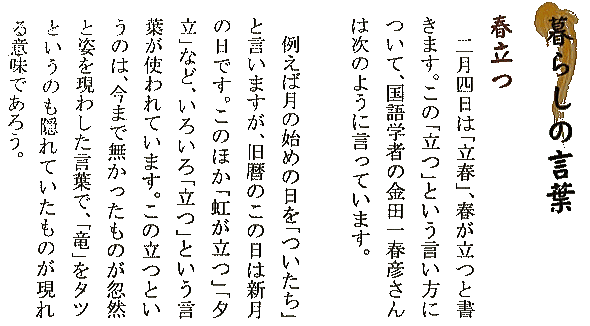 暮らしの言葉
春立つ
二月四日は「立春」、春が立つと書
きます。この「立つ」という言い方に
ついて、国語学者の金田一春彦さん
は次のように言っています。
例えば月の始めの日を「ついたち」
と言いますが、旧暦のこの日は新月
の日です。このほか「虹が立つ」「夕
立」など、いろいろ「立つ」という言
葉が使われています。この立つとい
うのは、今まで無かったものが忽然
と姿を現わした言葉で、「竜」をタツ
というのも隠れていたものが現れ
る意味であろう。